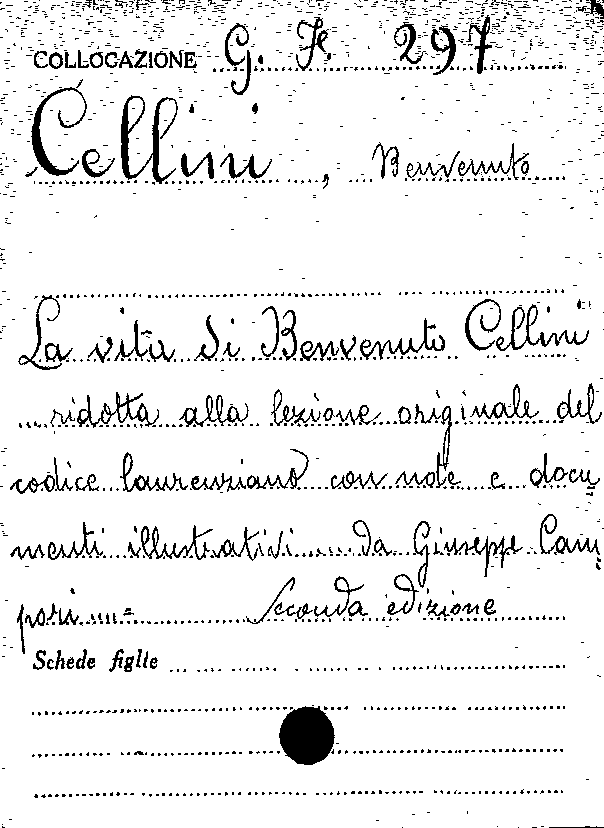 COLLOCAZIONE G. Fe. 297
Cellini, Benvenuto
La vita di Benvenuto Cellini
ridotta alla lezione originale del
codice laurenziano con note e docu
menti illustrativi .... da Giuseppe Cam
pori .... = Seconda edizione
Schede figlie